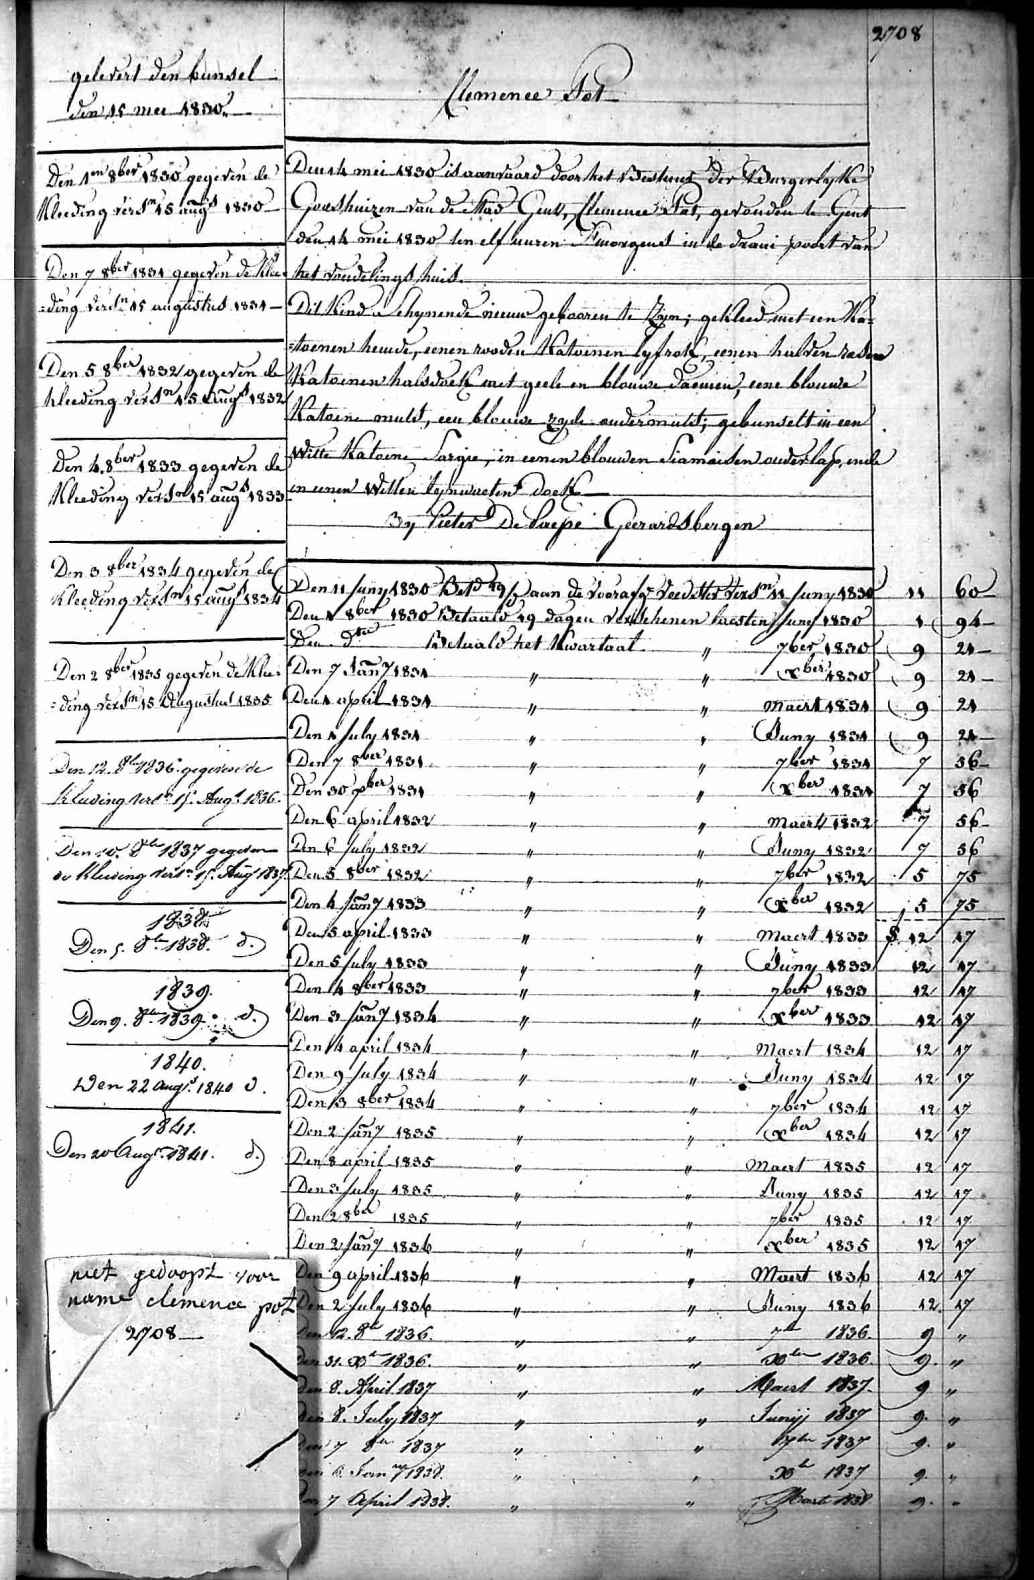 2708
gelevert den bunsel
den 15 mee 1830
Clemence Pot
Den 1en 8ber 1830 gegeven de
Kleeding versn 15 augs 1830
Den 7 8ber 1831 gegeven de Klee-
=ding versn 15 augustus 1831
Den 5 8ber 1832 gegeven de
Kleeding versn 15 augs 1832
Den 4 8ber 1833 gegeven de
Kleeding versn 15 augs 1833
Den 3 8ber 1834 gegeven de
Kleeding versn 15 augs 1834
Den 2 8ber 1835 gegeven de Klee-
=ding versn 15 Augustus 1835
Den 12. 8br 1836 gegeven de
Kleeding versn 15 Augt 1836.
Den 10. 8br 1837 gegeven
de Kleeding versn 15 Augt 1837
1838
Den 5. 8br 1838. d.)
1839.
Den 9. 8br 1839. d.)
1840.
Den 22 Augt 1840 d.
1841.
Den 20 Augt 1841. d.)
niet gedoopt voor
name clemence pot
2708
Den 14 mei 1830 is aanvaard door het Bestuur der Burgerlyke
Godshuizen van de Stad Gent, Clemence Pot, gevonden te Gent
den 14 mei 1830 ten elf uuren s'morgens in de draai poort van
het vondelings huis.
Dit Kind schynende nieuw gebooren te Zyn; gekleed met een Ka-
=toenen hemde, eenen rooden Katoenen lyfrok, eenen halven rooden
Katoenen halsdoek met geele en blouwe bloemen, eene blouwe
Katoene muts, een blouwe zyde ondermuts; gebunselt in een
Witte Katoene Sargie, in eenen blouwen Siamoisen onderlap, ende
in eenen Witten lynwaeten doek
By Pieter De Paepe Geerardsbergen
Den 11 Juny 1830 Betd 29 aan de voorafg voedster versn 11 Juny 1830 11 60
Den 1 8ber 1830 Betaald 19 dagen verschenen laesten Juny 1830 1 94
Den dto Betaald het Kwartaal " 7ber 1830 9 24
Den 7 Jany 1831 " " xber 1830 9 24
Den 1 april 1831 " " Maert 1831 9 24
Den 1 July 1831 " " Juny 1831 9 24
Den 7 8ber 1831 " " 7ber 1831 7 56
Den 30 xber 1831 " " xber 1831 7 56
Den 6 april 1832 " " Maert 1832 7 56
Den 6 July 1832 " " Juny 1832 7 56
Den 5 8ber 1832 " " 7ber 1832 5 75
Den 4 Jany 1833 " " xber 1832 5 75
Den 5 april 1833 " " Maert 1833 $ 12 17
Den 5 July 1833 " " Juny 1833 12 17
Den 4 8ber 1833 " " 7ber 1833 12 17
Den 3 Jany 1834 " " xber 1833 12 17
Den 4 april 1834 " " Maert 1834 12 17
Den 9 July 1834 " " Juny 1834 12 17
Den 3 8ber 1834 " " 7ber 1834 12 17
Den 2 Jany 1835 " " xber 1834 12 17
Den 8 april 1835 " " Maert 1835 12 17
Den 3 July 1835 " " Juny 1835 12 17
Den 2 8ber 1835 " " 7ber 1835 12 17
Den 2 Jany 1836 " " xber 1835 12 17
Den 9 april 1836 " " Maert 1836 12 17
Den 2 July 1836 " " Juny 1836 12 17
Den 12. 8br 1836. " " 7br 1836. 9 "
Den 31. Xbr 1836. " " Xber 1836. 9. "
Den 8. April 1837 " " Maert 1837. 9 "
Den 8. July 1837 " " Junij 1837 9. "
Den 7 8br 1837 " " 7br 1837 9. "
Den 6 Janry 1838. " " Xbr 1837 9. "
Den 7 April 1838. " " Maert 1838 9. "